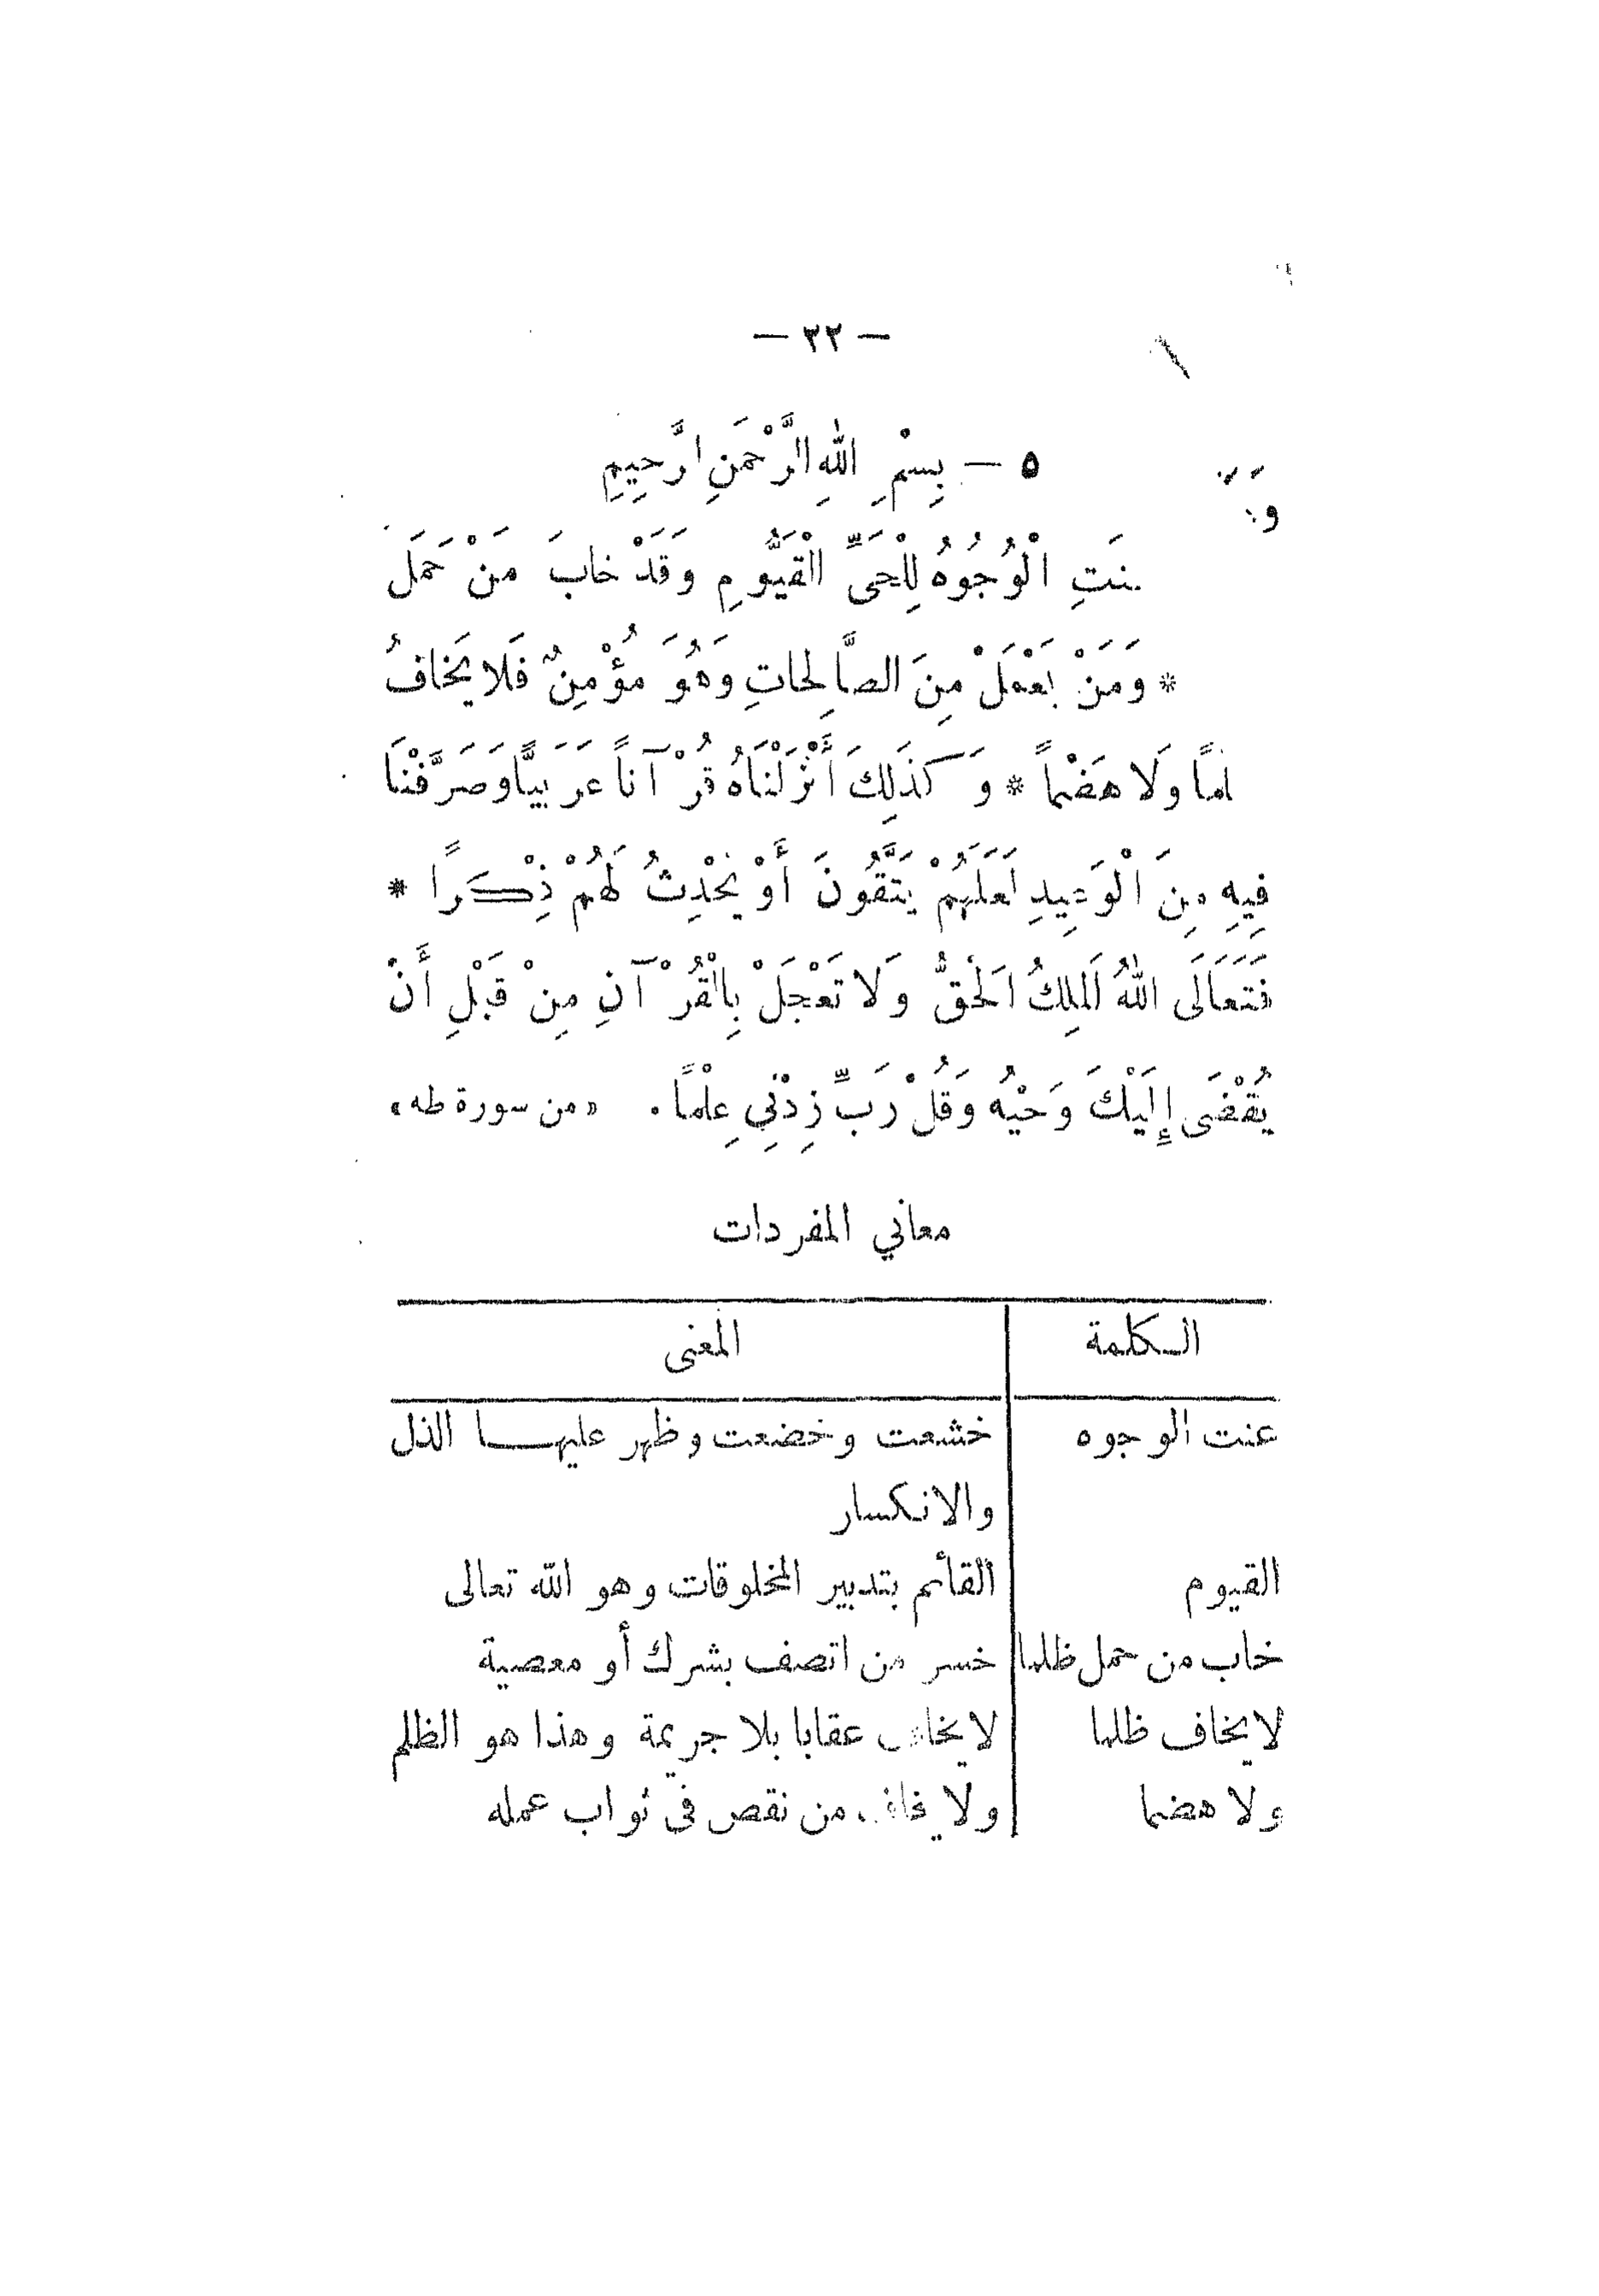 — ٢٢ —
٥ — بِسْمِ اللهِ الرَّحْمَنِ الرَّحِيمِ
الْوُجُوهُ لِلْحَيِّ الْقَيُّومِ وَقَدْ خابَ مَنْ حَمَلَ
* وَمَنْ يَعْمَلْ مِنَ الصَّالِحاتِ وَهُوَ مُؤْمِنٌ فَلا يَخافُ
وَلَا هَضْماً * وَكَذَلِكَ أَنْزَلْنَاهُ قُرْآناً عَرَبيًّا وَصَرَّفْنَا
فِيهِ مِنَ الْوَعِيدِ لَعَلَهُمْ يَتَّقُونَ أَوْ يُحْدِثُ لَهُمْ ذِكَراً *
فَتَعَالَى اللهُ الَملِكُ الَحْقُّ وَلَا تَعْجَلْ بِالْقُرْآنِ مِنْ قَبْلِ أَنْ
يُقْضَى إِلَيْكَ وَحْيُهُ وَقُلْ رَبِّ زِدْنِي عِلْماً . « من سورة طه »
معاني المفردات
الكلمة المعنى
عنت الوجوه خشعت وخضعت وظهر عليهـا الذل
والانكسار
القيوم القائم بتدبير المخلوقات وهو الله تعالى
خاب من حمل ظلما خسر من اتصف بشرك أو معصية
لا يخاف ظلما لا يخاف عقابا بلا جريمة وهذا هو الظلم
ولا هضما ولا يخاف من نقص في ثواب عمله